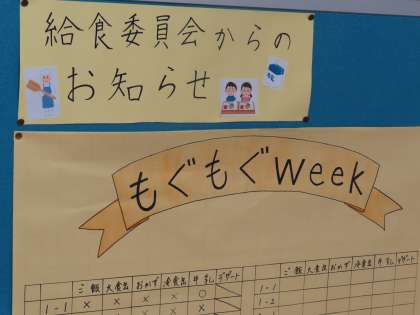 給食委員会からの
お知らせ
もぐもぐWeek
ご飯 大食缶 おかず 小食缶 牛乳 デザート
ご飯 大食缶 おかず 小食缶 牛乳 デザート
1-1 × × × × ○
1-1
1-2